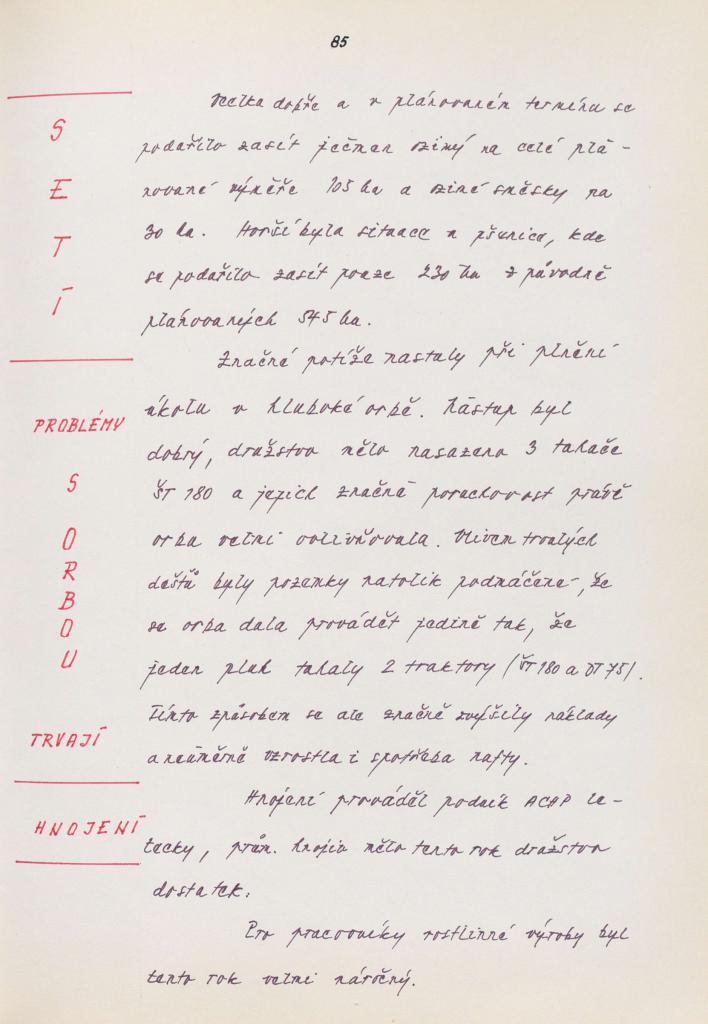 85
SETÍ
Veelka dobře a v plánovaném termínu se
podařilo zasít ječmen ozimý na celé plá-
nované výměře 105 ha a ozimé směsky na
30 ha. Horší byla situace u pšenice, kde
se podařilo zasít pouze 230 ha z původně
plánovaných 545 ha.
PROBLÉMY
S
ORBOU
TRVAJÍ
Značné potíže nastaly při plnění
úkolu v hluboké orbě. Nástup byl
dobrý, družstvo mělo nasazeno 3 tahače
ŠT 180 a jejich značná poruchovost právě
orbu velmi ovlivňovala. Vlivem trvalých
dešťů byly pozemky natolik podmáčené, že
se orba dala provádět jedině tak, že
jeden pluh tahaly 2 traktory (ŠT 180 a DT 75).
Tímto způsobem se ale značně zvýšily náklady
a neúměrně vzrostla i spotřeba nafty.
HNOJENÍ
Hnojení prováděl podnik ACHP le-
tecky, prům. hnojiv mělo tento rok družstvo
dostatek.
Pro pracovníky rostlinné výroby byl
tento rok velmi náročný.